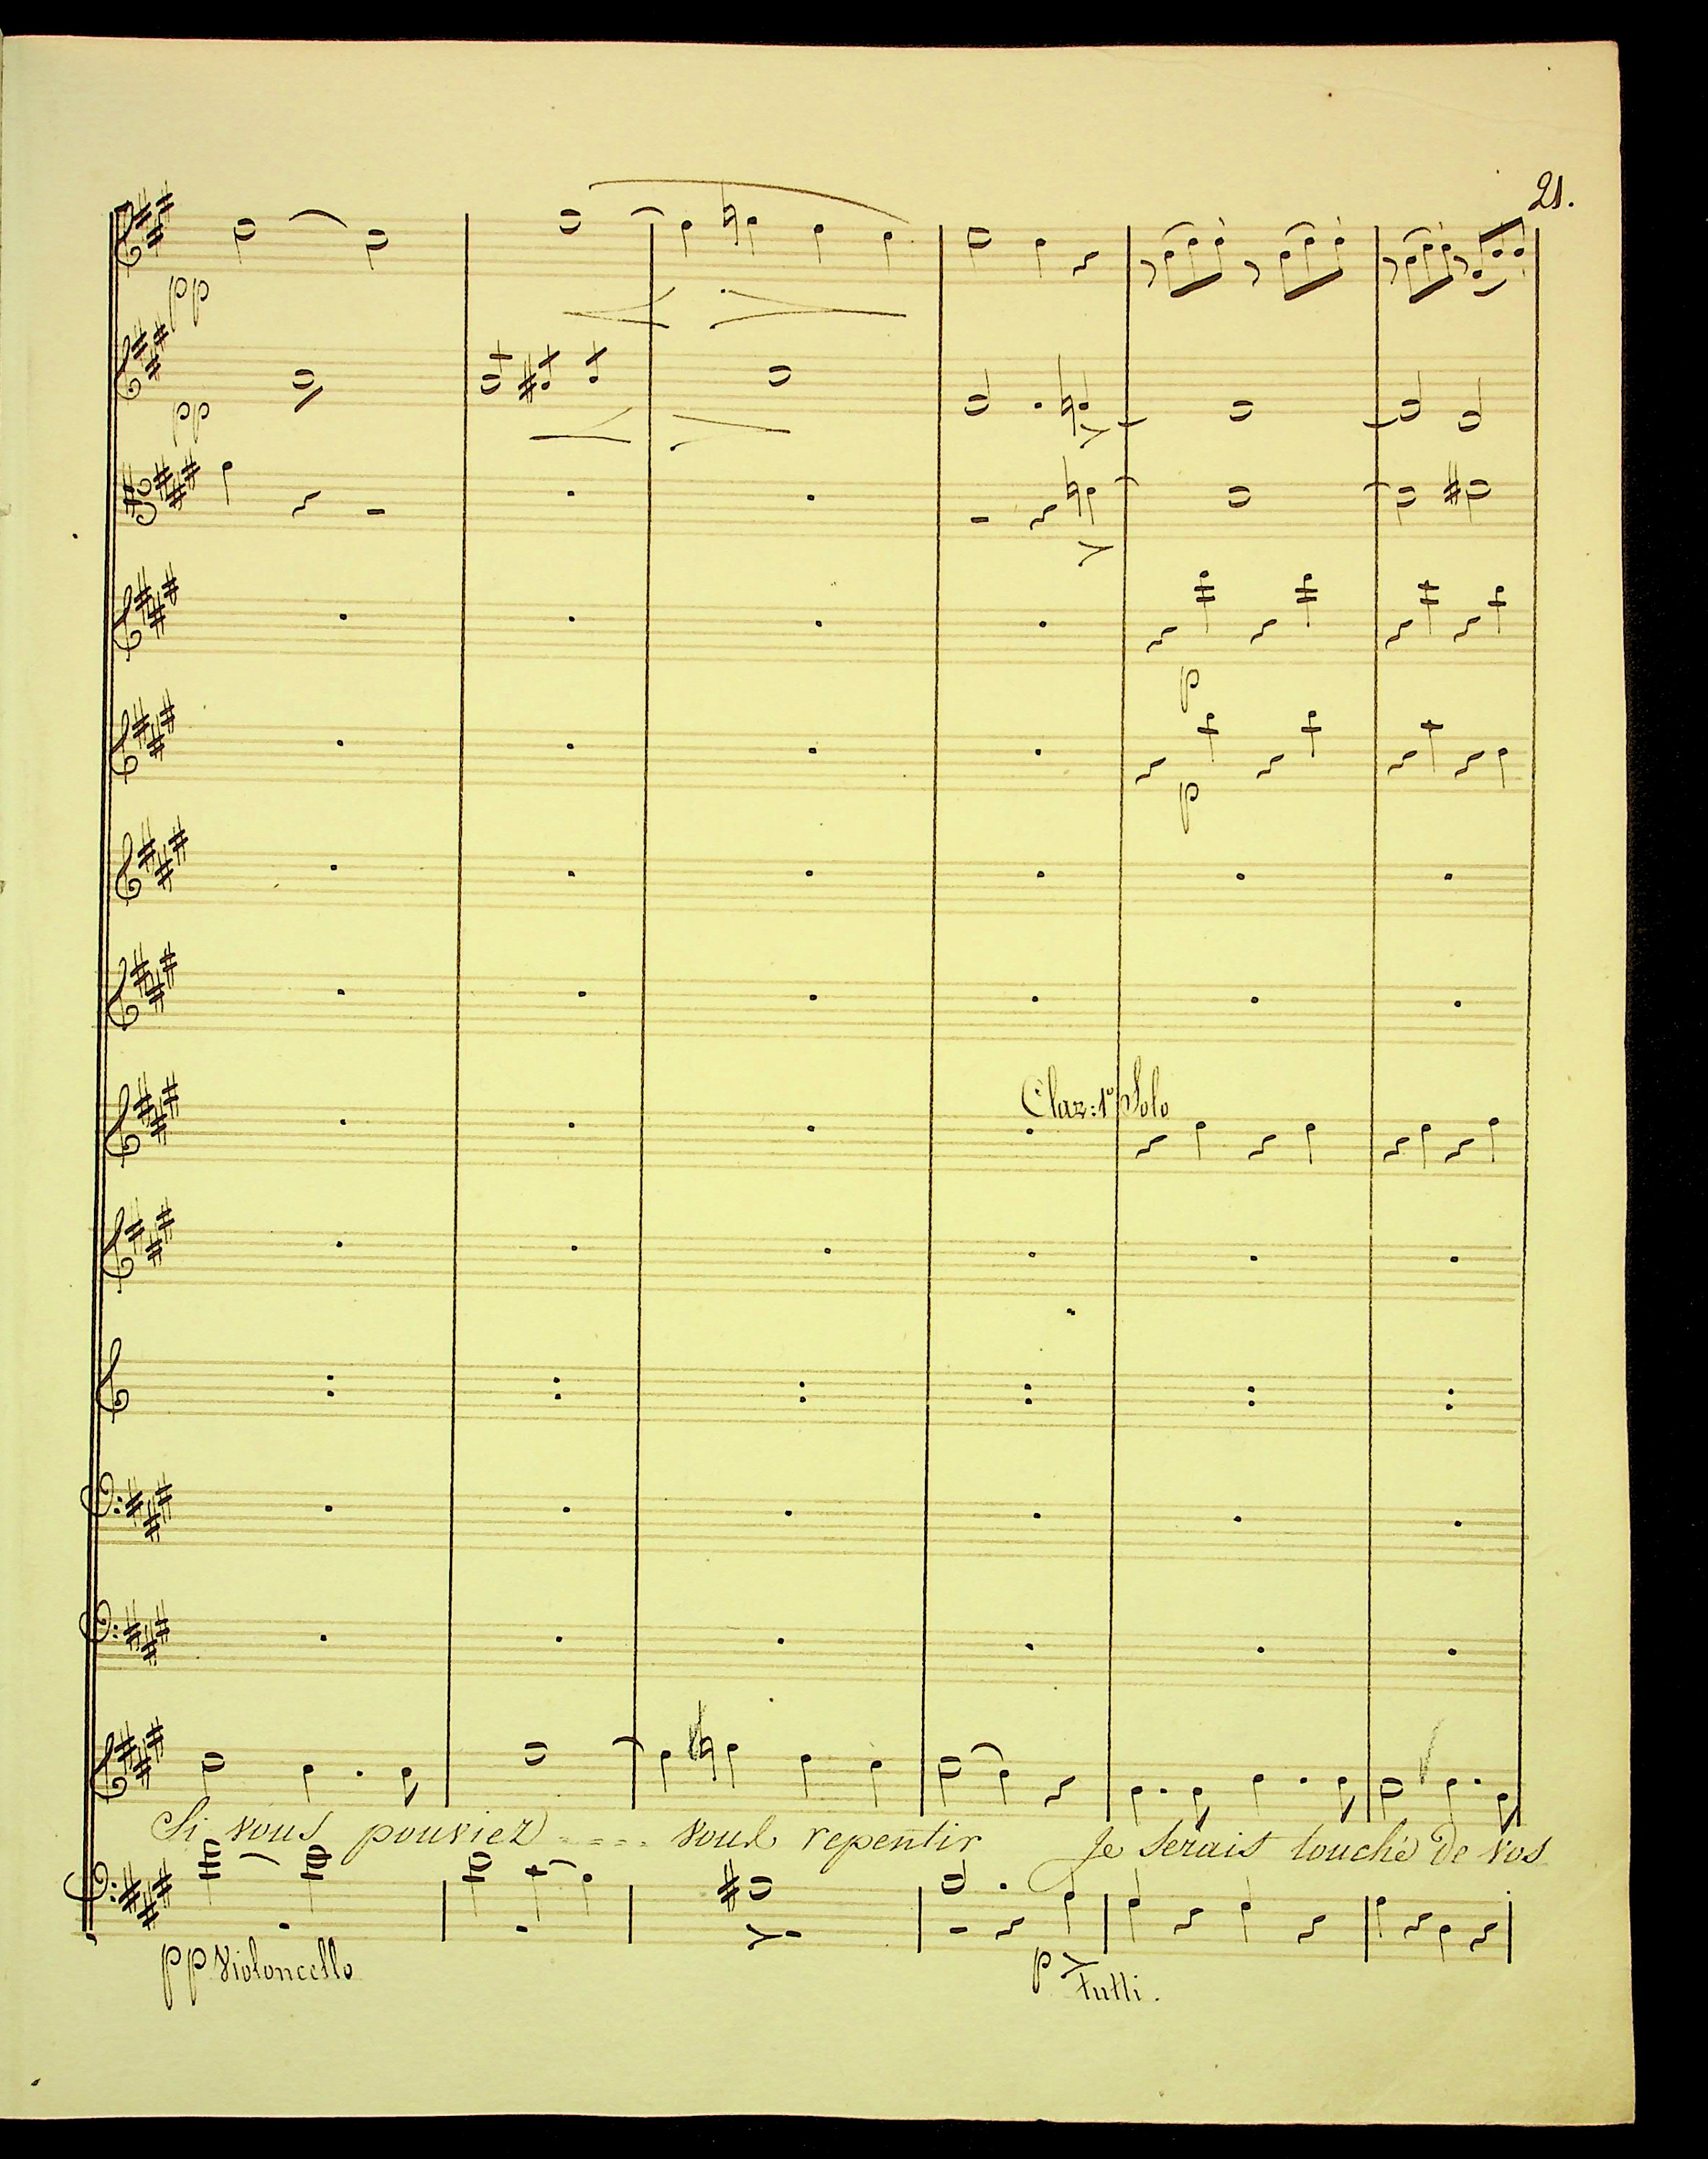 21.
pp
pp
p
p
Clar: 1º Solo
Si vous pouviez - - - - vous repentir Je serais touché de vos
pp Violoncello
p tutti.